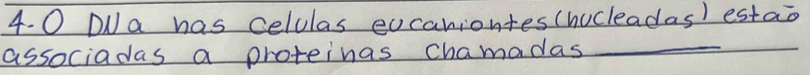 4-O DNa has celulas eucaniontes (nucleadas) estaõ
associadas a proteinas chamadas ________